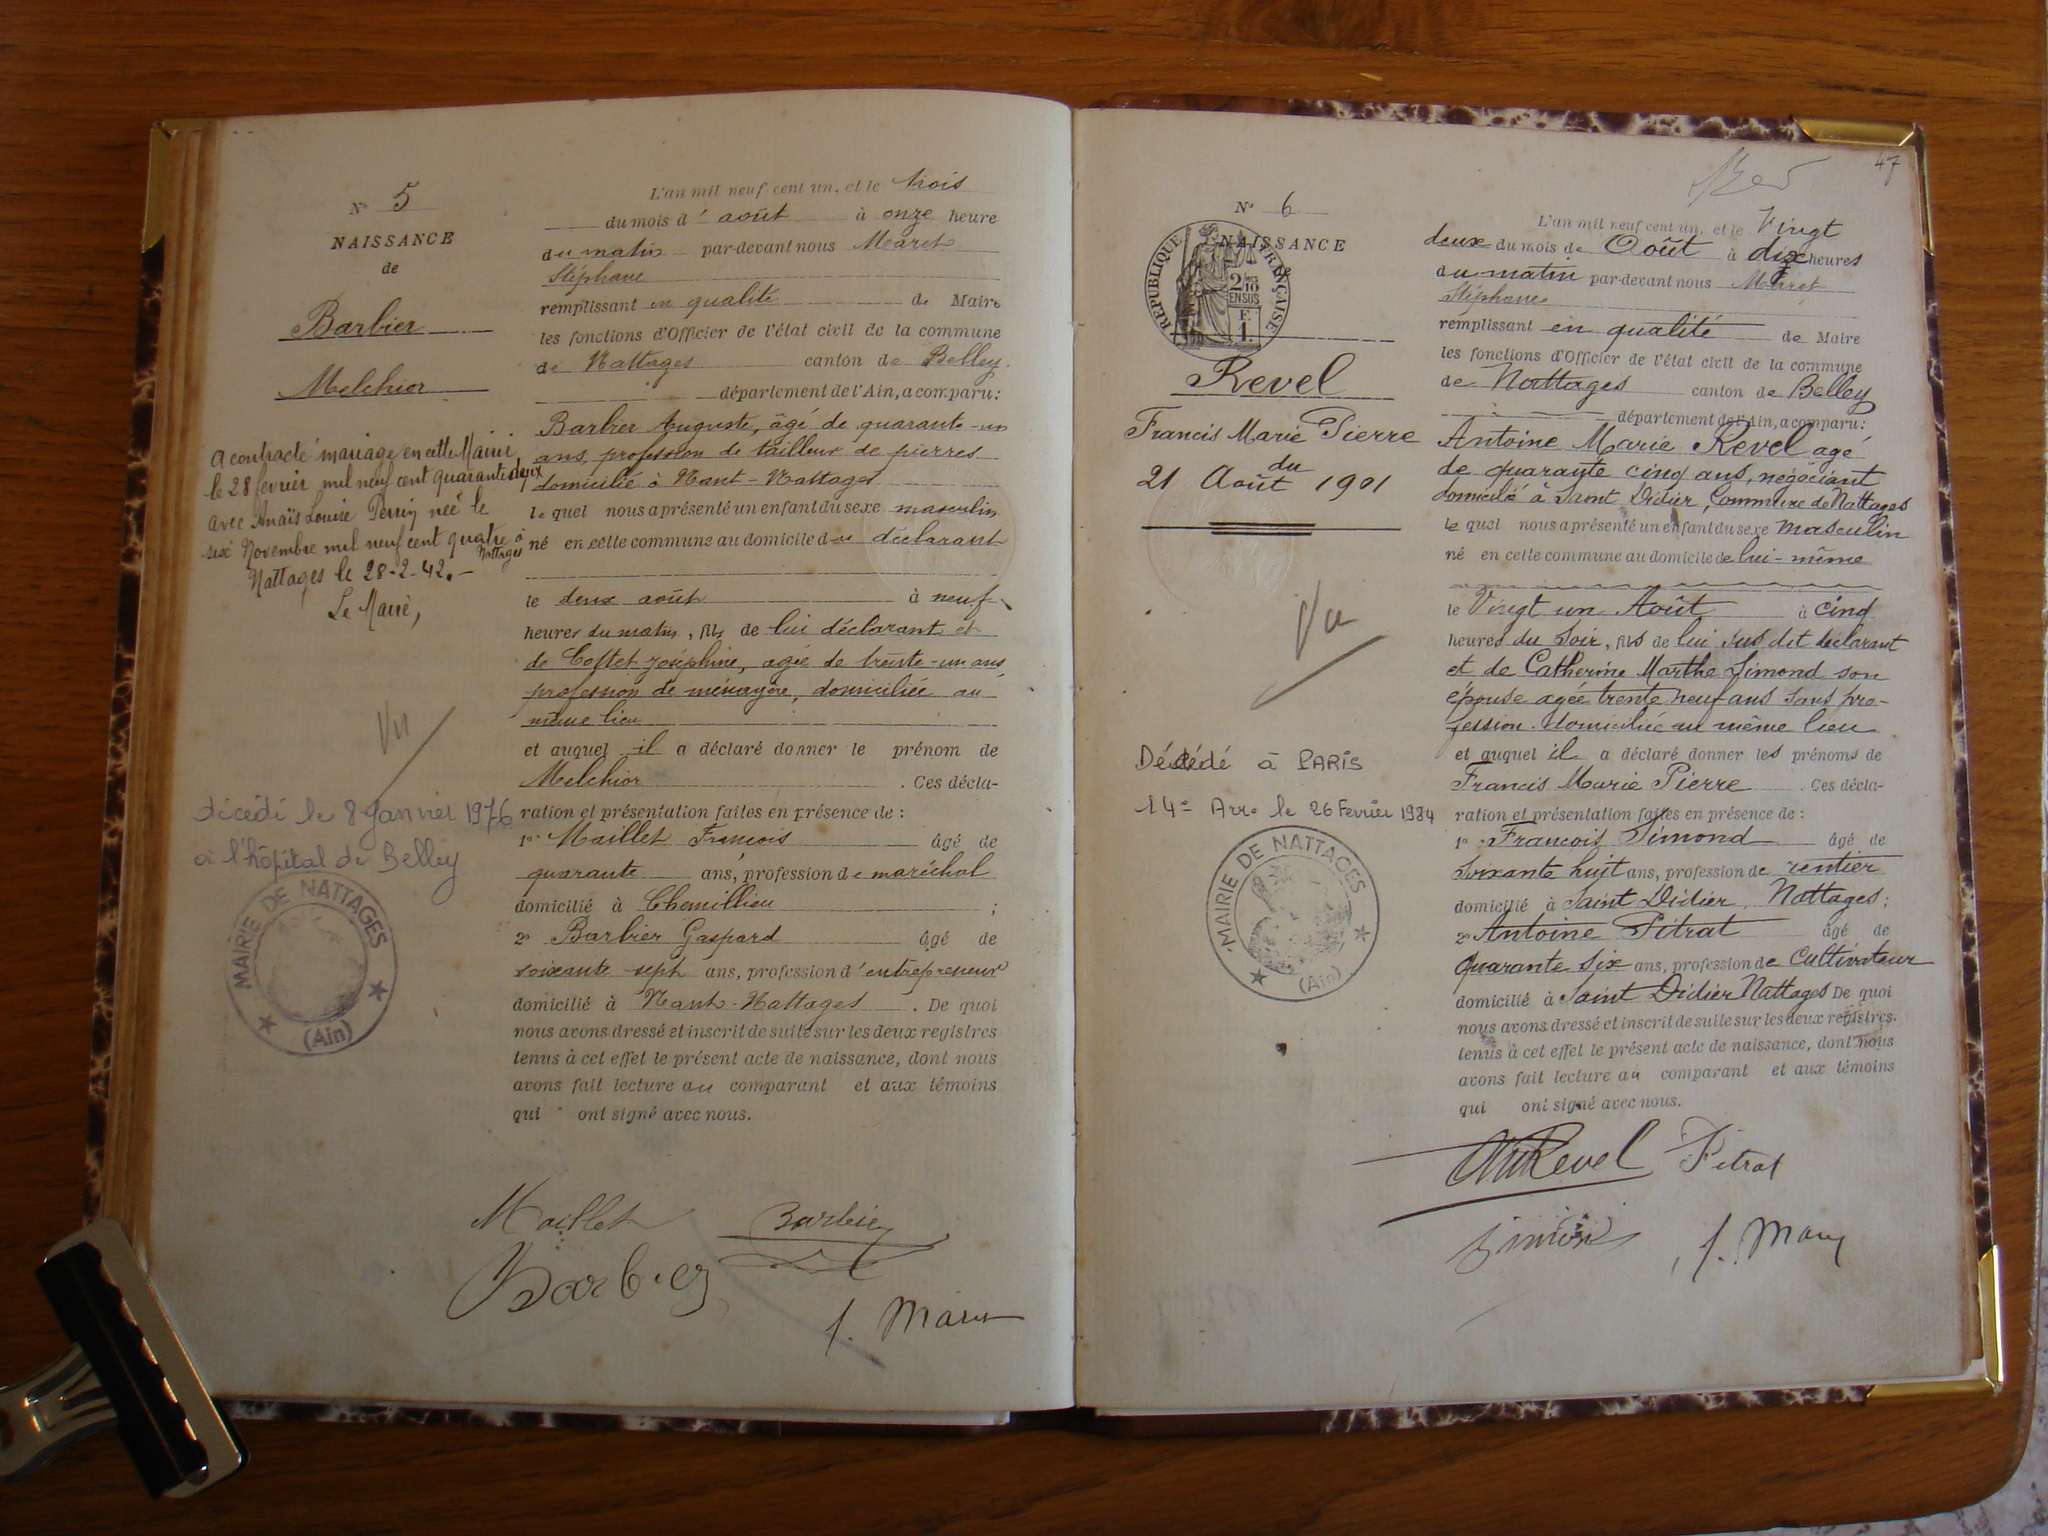 N° 5
NAISSANCE
de
Barbier
Melchior
A contracté mariage en cette Mairie
le 28 fevrier mil neuf cent quarante deux
avec Anaïs Louise Perrin née le
six Novembre mil neuf cent quatre à
Nattages
Nattages le 28-2-42.-
Le Maire,
Vu
décédé le 8 Janvier 1976
à l'hôpital de Belley
MAIRIE DE NATTAGES
(Ain)
L'an mil neuf cent un, et le trois
du mois d'août à onze heure
du matin par-devant nous Maret
Stéphane
remplissant en qualité de Maire
les fonctions d'Officier de l'état civil de la commune
de Nattages canton de Belley.
département de l'Ain, a comparu:
Barbier Auguste, âgé de quarante-un
ans, profession de tailleur de pierres
domicilié à Nant-Nattages
le quel nous a présenté un enfant du sexe masculin
né en cette commune au domicile du déclarant
le deux août à neuf
heures du matin, fils de lui déclarant et
de Coftet Joséphine, agée de trente-un ans
profession de ménagère, domiciliée au
même lieu
et auquel il a déclaré donner le prénom de
Melchior . Ces décla-
ration et présentation faites en présence de :
1° Maillet François âgé de
quarante ans, profession de maréchal
domicilié à Chemillieu ;
2° Barbier Gaspard âgé de
soixante sept ans, profession d'entrepreneur
domicilié à Nant-Nattages . De quoi
nous avons dressé et inscrit de suite sur les deux registres
tenus à cet effet le présent acte de naissance, dont nous
avons fait lecture au comparant et aux témoins
qui ont signé avec nous.
Maillet Barbier
Barbier
S. Maret
47
N° 6
NAISSANCE
RÉPUBLIQUE FRANÇAISE
2/10
EN SUS
F.
1.
Revel
Francis Marie Pierre
du
21 Août 1901
Vu
Décédé à PARIS
14e Arr. le 26 Fevrier 1984
MAIRIE DE NATTAGES
(Ain)
L'an mil neuf cent un, et le Vingt
deux du mois de Août à dix heures
du matin par-devant nous Maret
Stéphane
remplissant en qualité de Maire
les fonctions d'Officier de l'état civil de la commune
de Nattages canton de Belley
département de l'Ain, a comparu:
Antoine Marie Revel agé
de quarante cinq ans, négociant
domicilié à Saint Didier, Commune de Nattages
le quel nous a présenté un enfant du sexe masculin
né en cette commune au domicile de lui-même
le Vingt un Août à cinq
heures du Soir, fils de lui sus dit déclarant
et de Catherine Marthe Simond son
épouse agée trente neuf ans sans pro-
fession. domiciliée au même lieu
et auquel il a déclaré donner les prénoms de
Francis Marie Pierre . Ces décla-
ration et présentation faites en présence de :
1° François Simond âgé de
soixante huit ans, profession de rentier
domicilié à Saint Didier, Nattages;
2° Antoine Pitrat âgé de
quarante six ans, profession de Cultivateur
domicilié à Saint Didier Nattages De quoi
nous avons dressé et inscrit de suite sur les deux registres.
tenus à cet effet le présent acte de naissance, dont nous
avons fait lecture au comparant et aux témoins
qui ont signé avec nous.
Revel Pitrat
Simond S. Maret